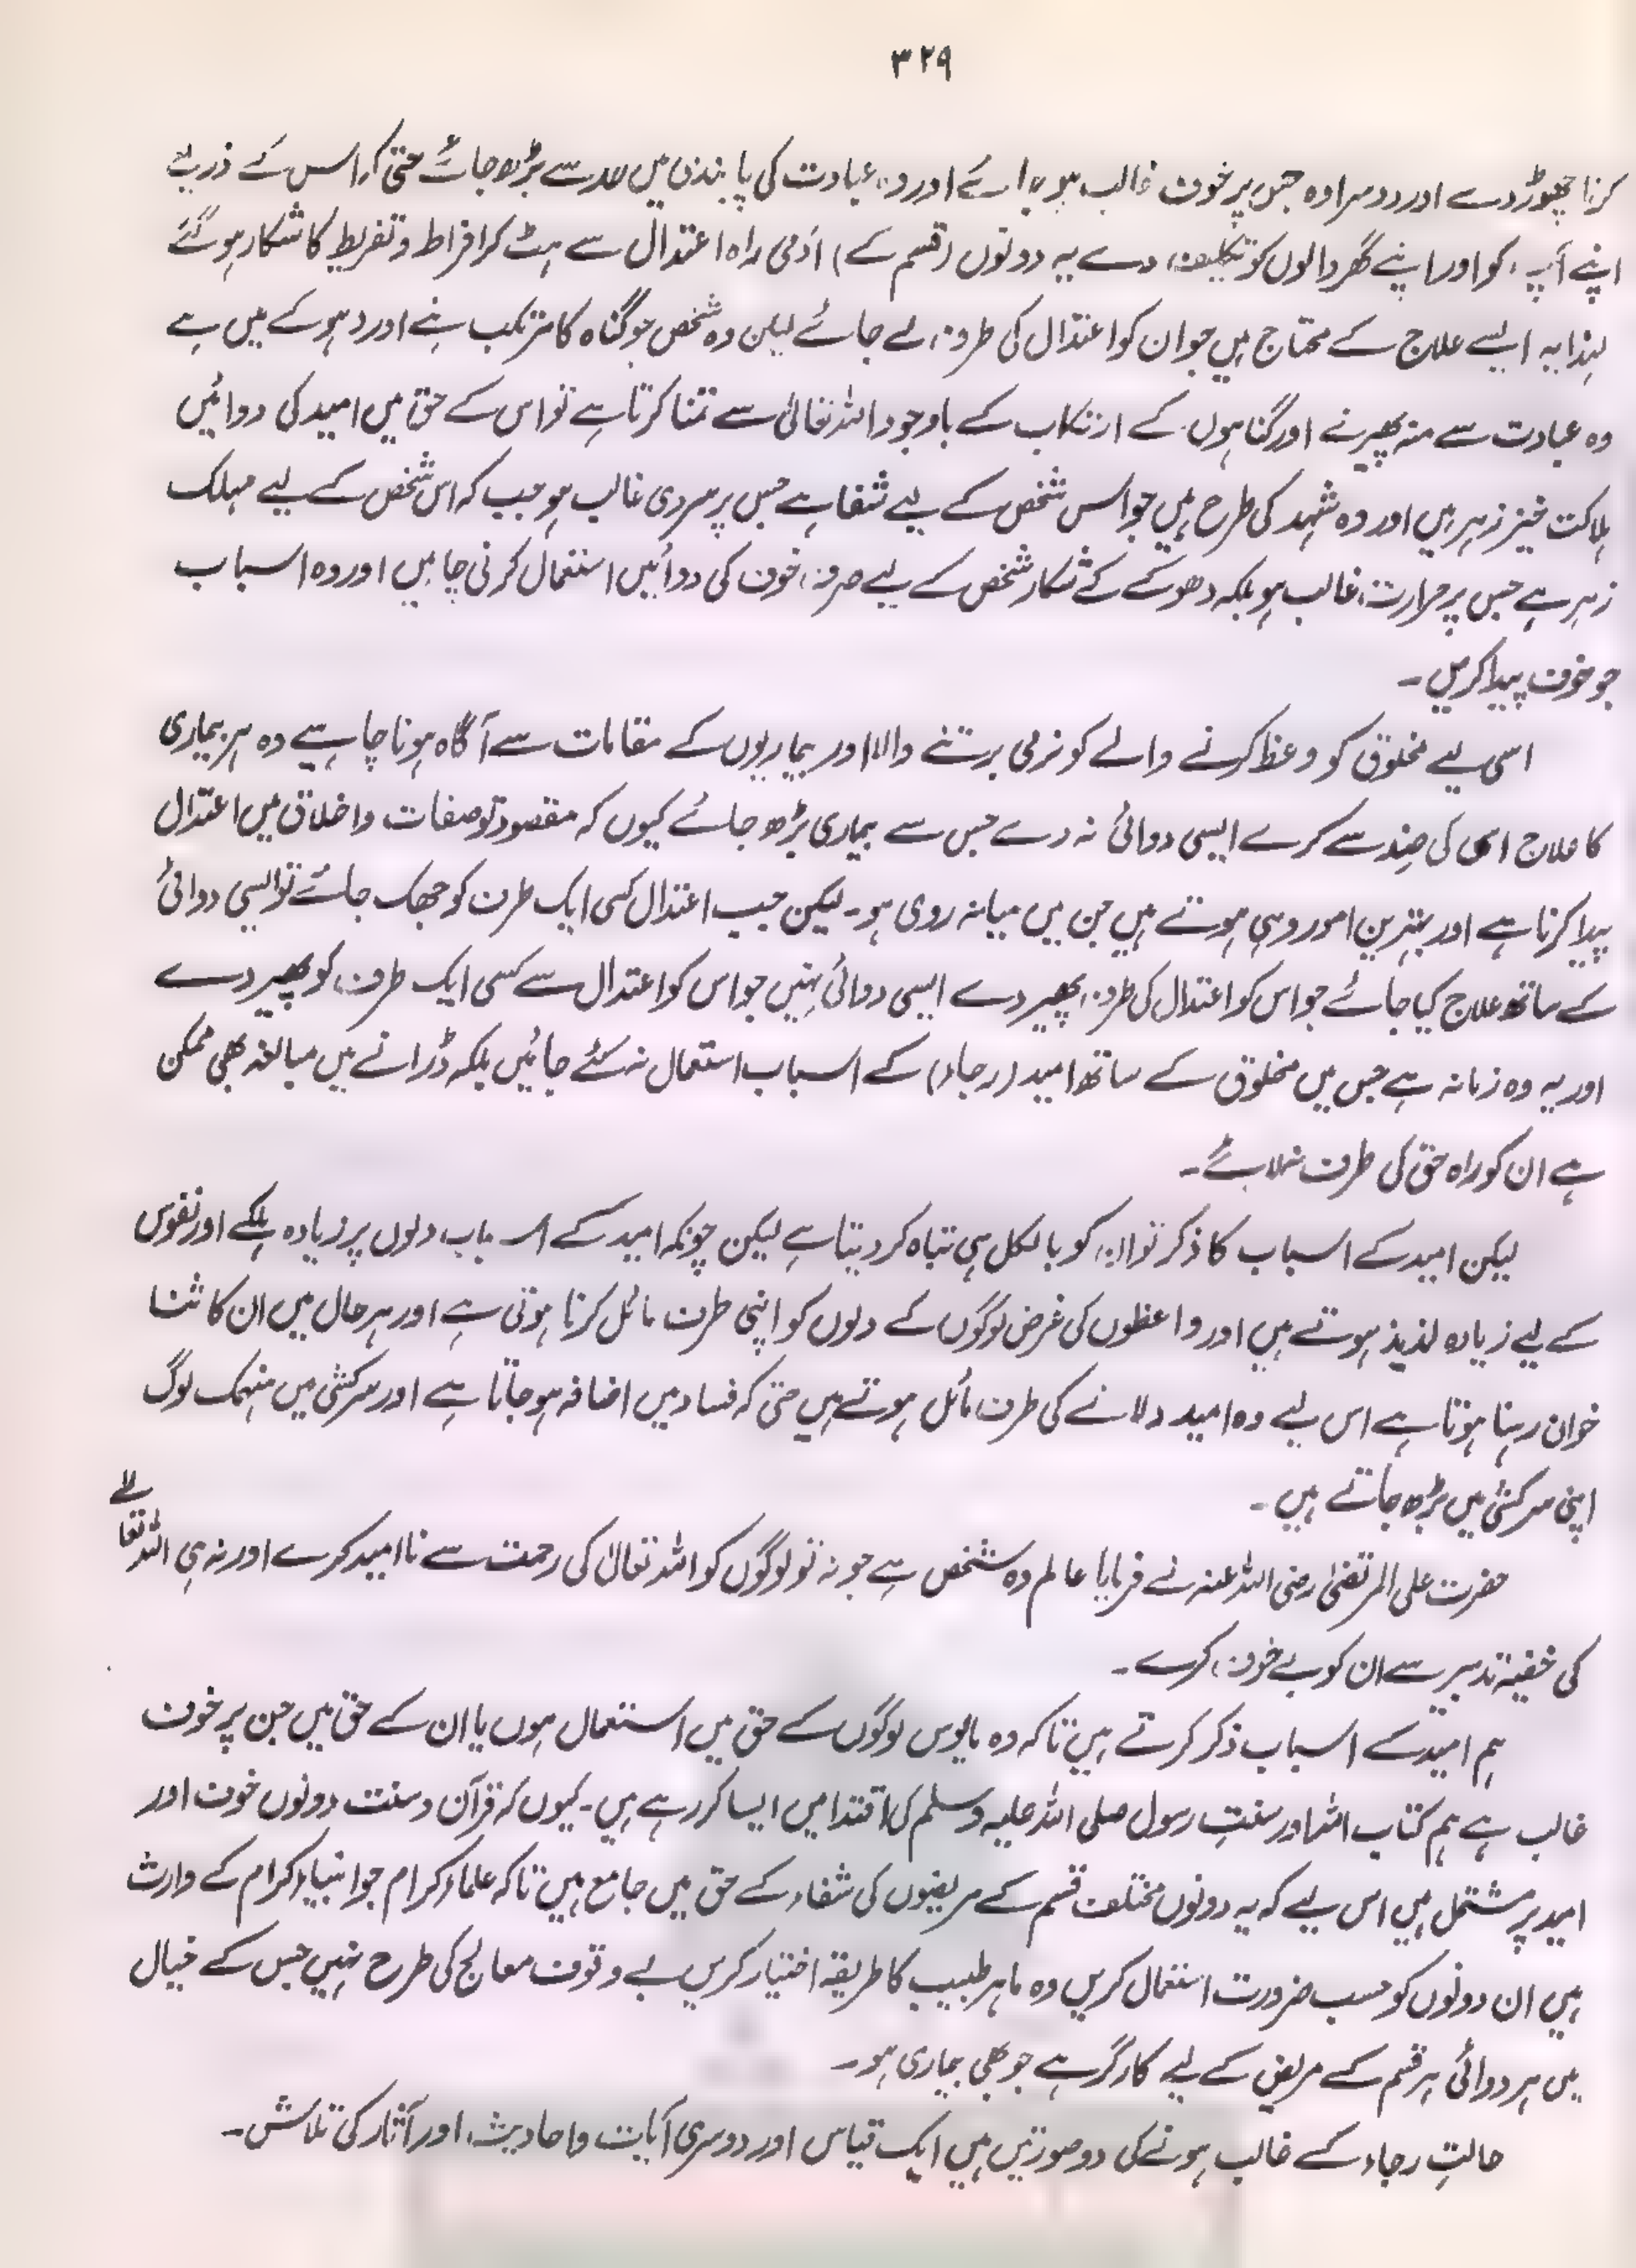 ۳۲۹
کرنا چھوڑ دے اور دوسرا وہ جس پر خوف غالب ہو جائے اور وہ عبادت کی پابندی میں حد سے بڑھ جائے حتی کہ اس کے ذریعے
اپنے آپ کو اور اپنے گھر والوں کو تکلیف دے یہ دونوں (قسم کے) آدمی راہ اعتدال سے ہٹ کر افراط و تفریط کا شکار ہو گئے
لہذا یہ ایسے علاج کے محتاج ہیں جو ان کو اعتدال کی طرف لے جائے لیکن وہ شخص جو گناہ کا مرتکب بنے اور دہوکے میں ہے
وہ عبادت سے منہ پھیرنے اور گناہوں کے ارتکاب کے باوجود اللہ تعالیٰ سے تمنا کرتا ہے تو اس کے حق میں امید کی دوائیں
ہلاکت خیز زہر ہیں اور وہ شہد کی طرح ہیں جو اس شخص کے لیے شفا ہے جس پر سردی غالب ہو جب کہ اس شخص کے لیے مہلک
زہر ہے جس پر حرارت غالب ہو بلکہ دھوکے کے شکار شخص کے لیے صرف خوف کی دوائیں استعمال کرنی چاہیں اور وہ اسباب
جو خوف پیدا کریں۔
اسی لیے مخلوق کو وعظ کرنے والے کو نرمی برتنے والا اور بیماریوں کے مقامات سے آگاہ ہونا چاہیے وہ ہر بیماری
کا علاج اس کی ضد سے کرے ایسی دوائی نہ دے جس سے بیماری بڑھ جائے کیوں کہ مقصود تو صفات و اخلاق میں اعتدال
پیدا کرنا ہے اور بہترین امور وہی ہوتے ہیں جن میں میانہ روی ہو۔ لیکن جب اعتدال کسی ایک طرف کو جھک جائے تو ایسی دوائی
کے ساتھ علاج کیا جائے جو اس کو اعتدال کی طرف پھیر دے ایسی دوائی نہیں جو اس کو اعتدال سے کسی ایک طرف کو پھیر دے
اور یہ وہ زمانہ ہے جس میں مخلوق کے ساتھ امید (رجاء) کے اسباب استعمال نہ کئے جائیں بلکہ ڈرانے میں مبالغہ بھی ممکن
ہے ان کو راہ حق کی طرف نہ لائے۔
لیکن امید کے اسباب کا ذکر تو ان کو بالکل ہی تباہ کر دیتا ہے لیکن چونکہ امید کے اسباب دلوں پر زیادہ ہلکے اور نفوس
کے لیے زیادہ لذیذ ہوتے ہیں اور واعظوں کی غرض لوگوں کے دلوں کو اپنی طرف مائل کرنا ہوتی ہے اور ہر حال میں ان کا ثنا
خوان رہنا ہوتا ہے اس لیے وہ امید دلانے کی طرف مائل ہوتے ہیں حتی کہ فساد میں اضافہ ہو جاتا ہے اور سرکشی میں منہمک لوگ
اپنی سرکشی میں بڑھ جاتے ہیں۔
حضرت علی المرتضیٰ رضی اللہ عنہ نے فرمایا عالم وہ شخص ہے جو نہ تو لوگوں کو اللہ تعالیٰ کی رحمت سے نا امید کرے اور نہ ہی اللہ تعالے
کی خفیہ تدبیر سے ان کو بے خوف کرے۔
ہم امید کے اسباب ذکر کرتے ہیں تاکہ وہ مایوس لوگوں کے حق میں استعمال ہوں یا ان کے حق میں جن پر خوف
غالب ہے ہم کتاب اللہ اور سنتِ رسول صلی اللہ علیہ وسلم کی اقتدا میں ایسا کر رہے ہیں۔ کیوں کہ قرآن و سنت دونوں خوف اور
امید پر مشتمل ہیں اس لیے کہ یہ دونوں مختلف قسم کے مریضوں کی شفاء کے حق میں جامع ہیں تاکہ علماء کرام جو انبیاء کرام کے وارث
ہیں ان دونوں کو حسب ضرورت استعمال کریں وہ ماہر طبیب کا طریقہ اختیار کریں بے وقوف معالج کی طرح نہیں جس کے خیال
میں ہر دوائی ہر قسم کے مریض کے لیے کارگر ہے جو بھی بیماری ہو۔
حالتِ رجاء کے غالب ہونے کی دو صورتیں ہیں ایک قیاس اور دوسری آیات و احادیث اور آثار کی تلاش۔